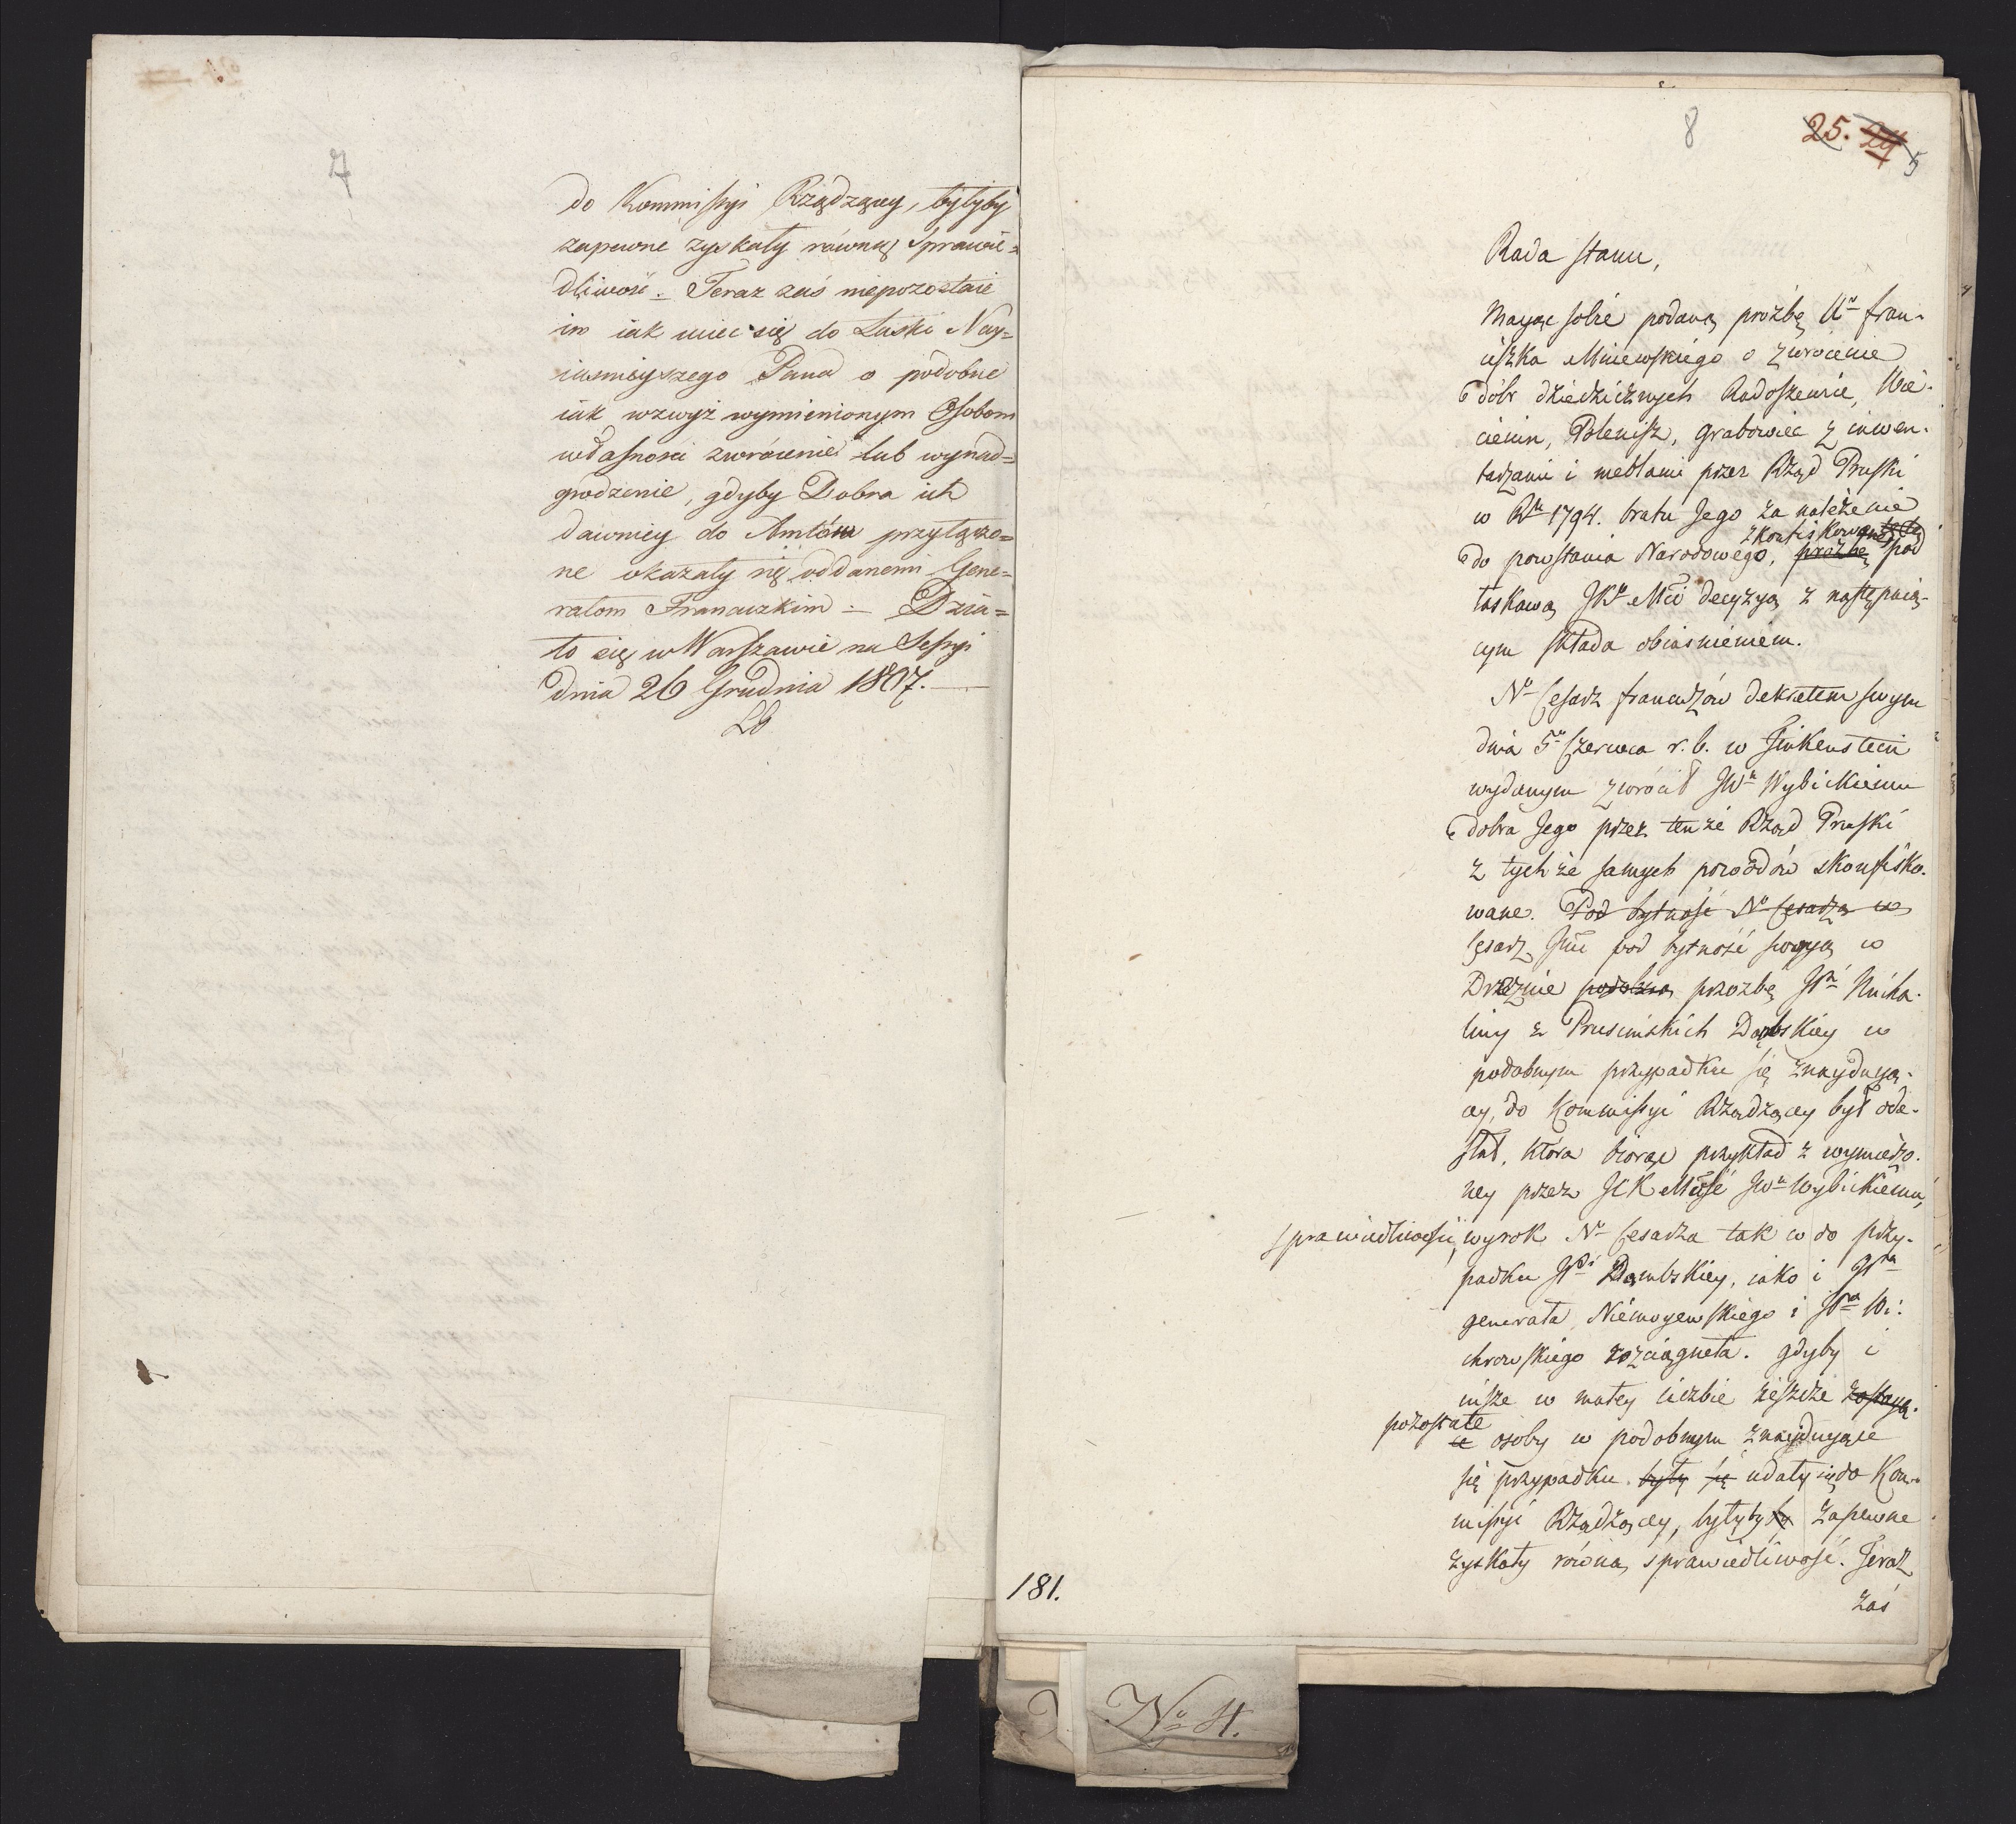 7
do Kommissyi Rządzącey, byłyby
zapewne zyskały równą Sprawie=
dliwość. Teraz zaś niepozostaie
im iak udać się do Łaski Nay=
iaśnieyszego Pana o podobne
iak wzwyż wymienionym Osobom
własności zwrócenie lub wynad=
grodzenie, gdyby Dobra ich
dawniey do Amtów przyłączo=
ne okazały się oddanemi Gene=
rałom Francuzkim – Dzia=
ło się w Warszawie na Sessyi
dnia 26 Grudnia 1807.
8
25. 24 5
Rada Stanu,
Maiąc sobie podaną proźbę Uo Fran-
ciszka Miniewskiego o zwrocenie
dóbr dziedzicznych Radoszewic, Wie-
ciemin, Polenisz, Grabowiec z inwen-
tarzami i meblami przez Rząd Pruski
w Rku 1794. bratu Jego za należenie
skonfiskowanych
do powstania Narodowego, proźbę pod
łaskawą JKr Mci decyzyą z następuią-
cym składa obiaśnieniem.
No Cesarz francuzów dekretem swym
dnia 5o Czerwca r. b. w Finkenstein
wydanym zwrócił JWu Wybickiemu
dobra Jego przez tenże Rząd Pruski
z tychże samych powodów skonfisko-
wane. Pod bytność No Cesarza w
Cesarz Jmc pod bytność swoyą w
Dreznie podobną prozbę JPi Micha-
liny z Prusimskich Dąbskiey w
podobnym przypadku się znayduią-
cey, do Kommissyi Rządzącey był ode-
słał, która biorąc przykład z wymierzo-
ney przez JCKMość JWu Wybickiemu,
sprawiedliwości, wyrok No Cesarza tak w do przy-
padku JPi Dąmbskiey, iako i JPa
generała Niemoyewskiego i JPa Wi-
chrowskiego rozciągneła. gdyby i
insze w małey liczbie ieszcze zostaią-
pozostałe
ce osoby w podobnym znayduiące
się przypadku były się udały się do Kom-
missyi Rządzącey, byłyby by zapewne
zyskały równą sprawiedliwość. Teraz
zaś
181.
No 4.